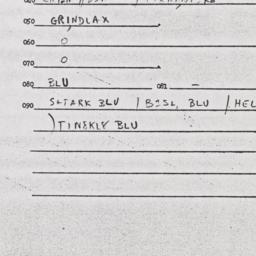 050 GRINDLAX
060 0
070 0
080 BLU 081 -
090 STARK BLU / BISL, BLU / HEL
) TINEKLY BLU